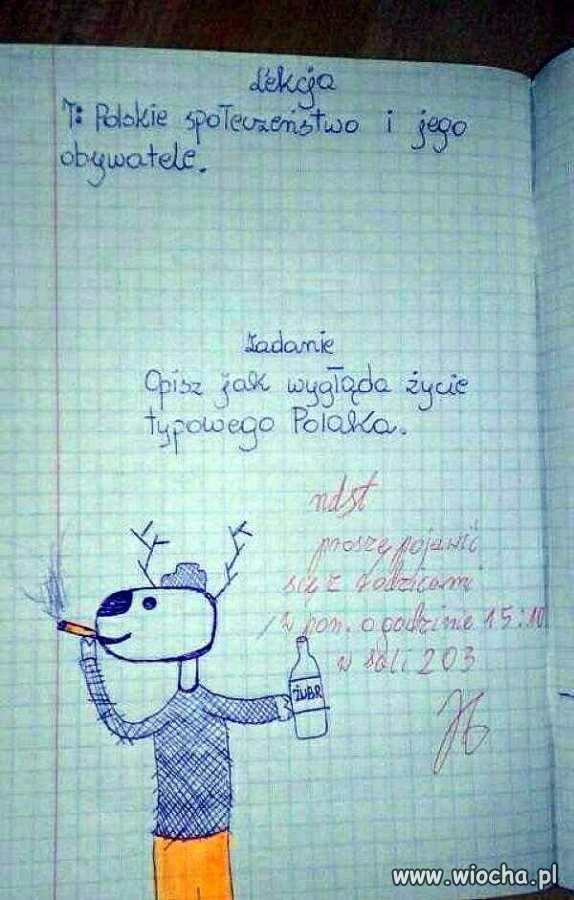 Lekcja
T: Polskie społeczeństwo i jego
obywatele.
Zadanie
Opisz jak wygląda życie
typowego Polaka.
ndst
proszę pojawić
się z rodzicami
w pon. o godzinie 15:10
w sali 203
ŻUBR
www.wiocha.pl